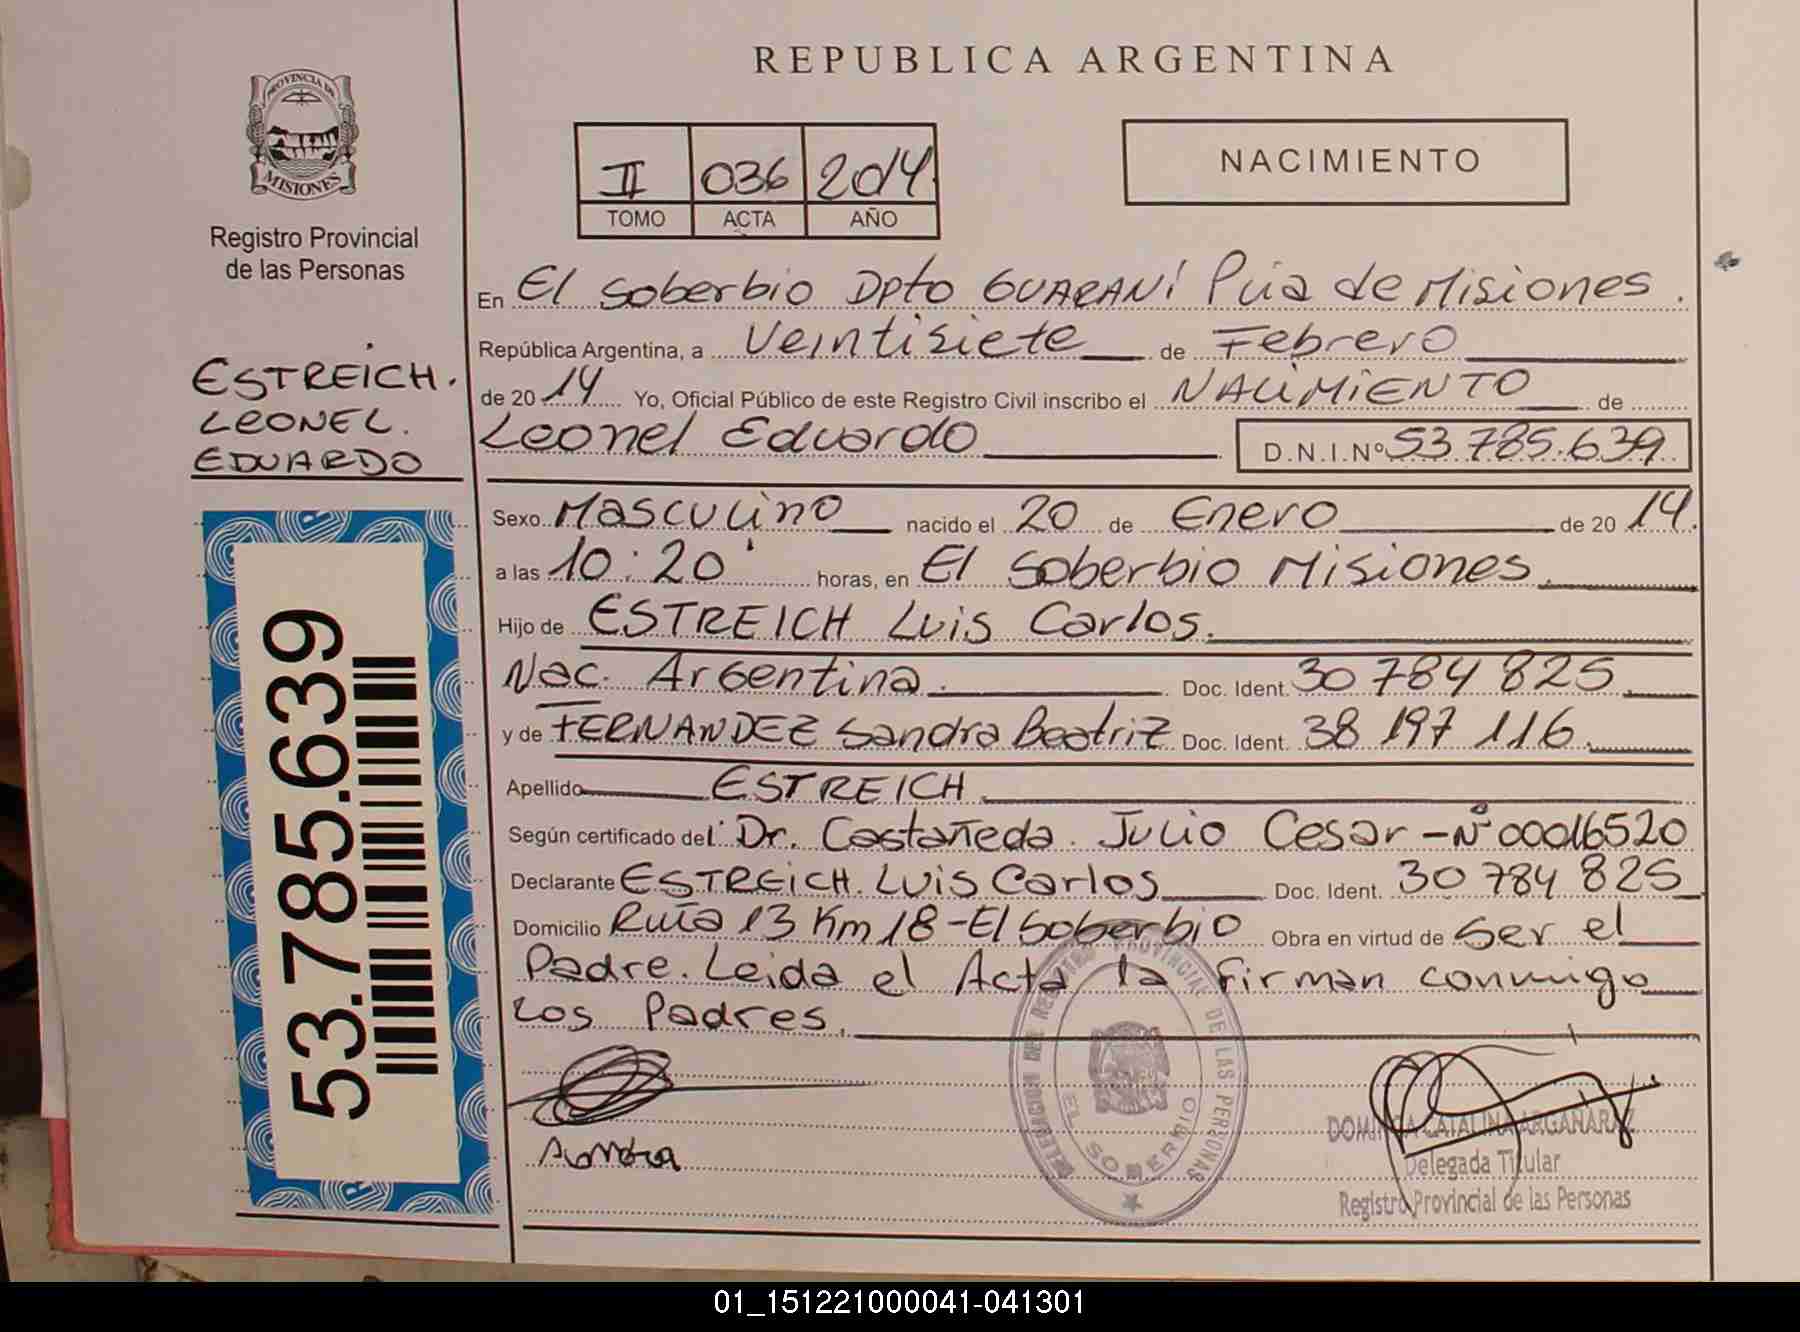 REPUBLICA ARGENTINA
PROVINCIA DE
MISIONES
Registro Provincial
de las Personas
II 036 2014
TOMO ACTA AÑO
NACIMIENTO
En El Soberbio Dpto GUARANÍ Pcia de Misiones.
República Argentina, a Veintisiete de Febrero
de 2014 Yo, Oficial Público de este Registro Civil inscribo el NACIMIENTO de
Leonel Eduardo D.N.I.Nº 53.785.639
ESTREICH.
LEONEL.
EDUARDO
53.785.639
Sexo Masculino nacido el 20 de Enero de 2014.
a las 10:20' horas, en El Soberbio Misiones.
Hijo de ESTREICH Luis Carlos.
Nac. Argentina. Doc. Ident. 30 784 825
y de FERNANDEZ Sandra Beatriz Doc. Ident. 38 197 116.
Apellido ESTREICH.
Según certificado del Dr. Castañeda. Julio Cesar - Nº 00016520
Declarante ESTREICH. Luis Carlos Doc. Ident. 30 784 825
Domicilio Ruta 13 Km 18 - El Soberbio Obra en virtud de Ser el
Padre. Leida el Acta la firman conmigo
Los Padres.
DELEGACION DEL REGISTRO PROVINCIAL DE LAS PERSONAS
EL SOBERBIO
DOMINGA CATALINA ARGAÑARAZ
Delegada Titular
Registro Provincial de las Personas
01_151221000041-041301